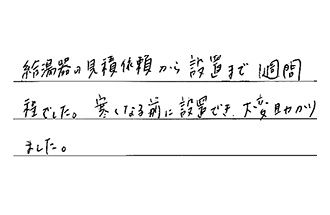 給湯器の見積依頼から設置まで1週間
程でした。寒くなる前に設置でき、大変助かり
ました。